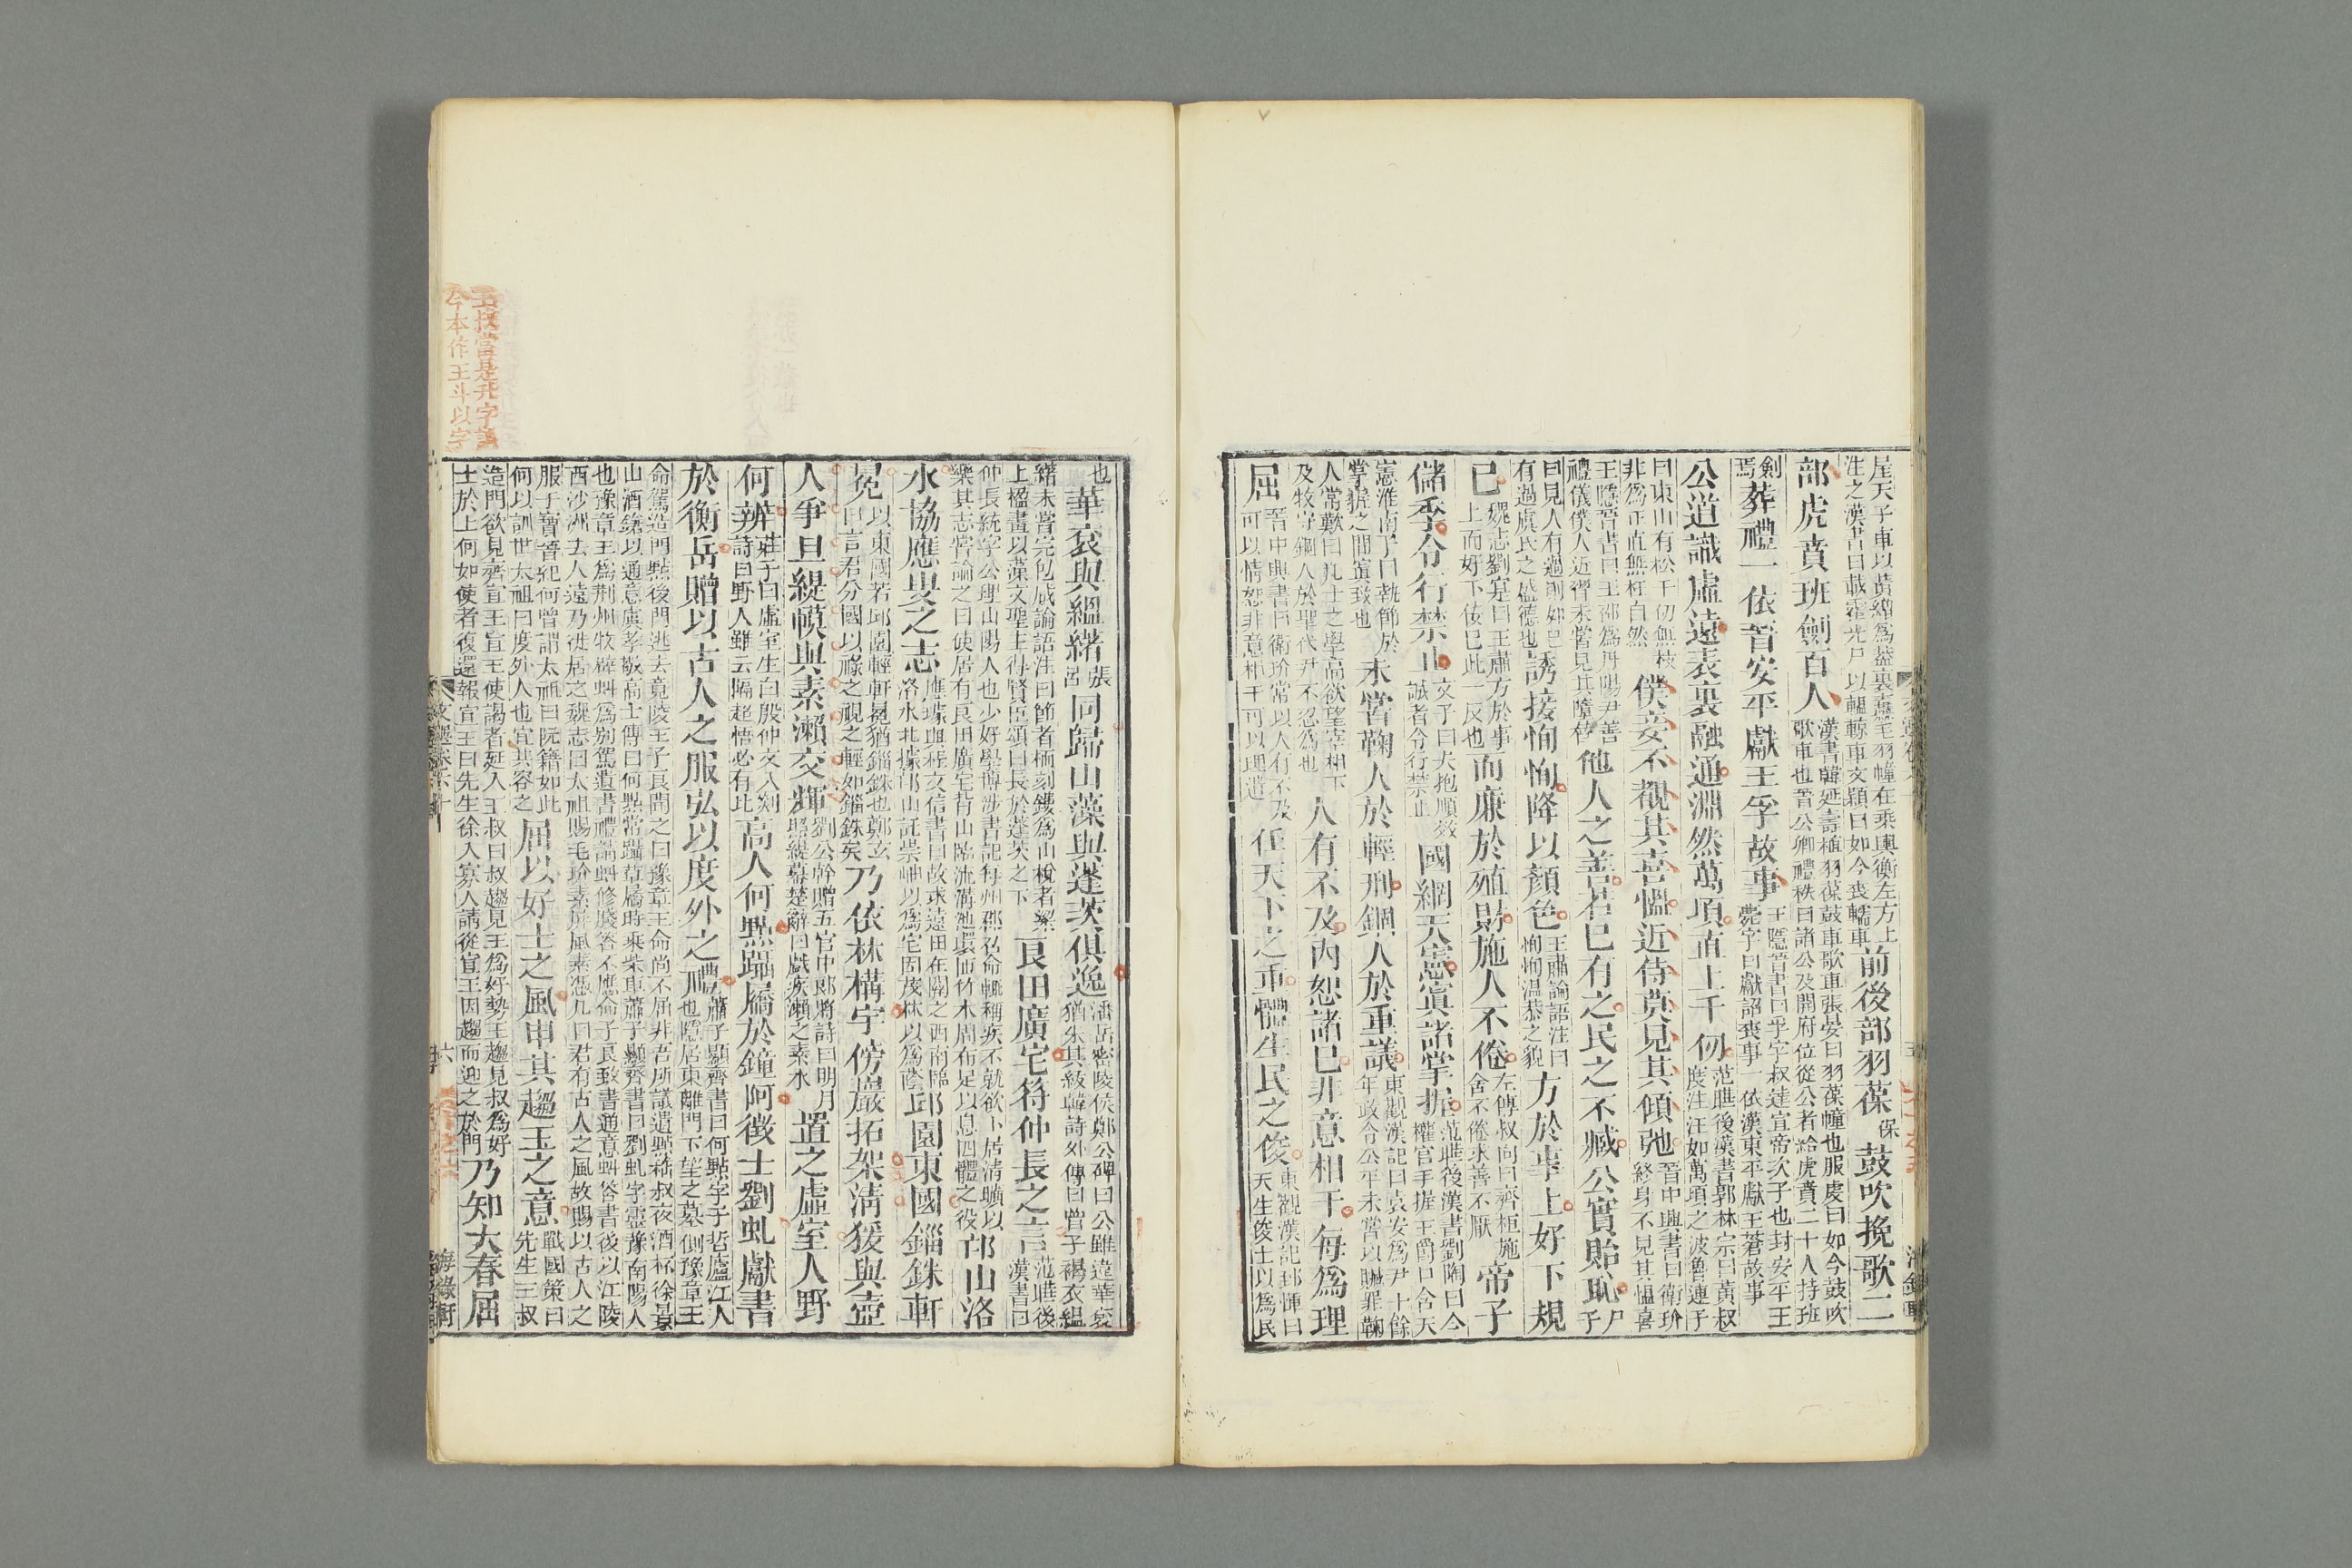 崖天子車以黃繒爲蓋裏纛毛羽幢在乘輿衡左方上注之漢書曰載霍光尸以轀輬車文穎曰如今喪轜車前後部羽葆保鼓吹挽歌二
部虎賁班劒百人漢書韓延壽植羽葆鼓車歌車張晏曰羽葆幢也服虔曰如今鼓吹歌車也晉公卿禮秩曰諸公及開府位從公者給虎賁二十人持班
劍焉葬禮一依晉安平獻王孚故事王隱晉書曰孚字叔達宣帝次子也封安平王薨字曰獻詔喪事一依漢東平獻王蒼故事
公道識虛遠表裏融通淵然萬頃直上千仞范曄後漢書郭林宗曰黃叔度汪汪如萬頃之波魯連子
曰東山有松千仞無枝非爲正直無枉自然僕妾不覩其喜慍近侍莫見其傾弛晉中興書曰衛玠終身不見其慍喜
王隱晉書曰王邵爲丹陽尹善禮儀僕人近習未嘗見其墮替他人之善若已有之民之不臧公實貽恥尸子
曰見人有過則如已有過虞氏之盛德也誘接恂恂降以顏色王肅論語注曰恂恂溫恭之貌方於事上好下規
已魏志劉寔曰王肅方於事上而好下佞已此一反也而廉於殖財施人不倦左傳叔向曰齊桓施舍不倦求善不厭帝子
儲季令行禁止文子曰夫抱順效誠者令行禁止國網天憲寘諸掌握范曄後漢書劉陶曰今權官手握王爵口含天
憲淮南子曰執節於掌握之間寘致也未嘗鞠人於輕刑錮人於重議東觀漢記曰袁安爲尹十餘年政令公平未嘗以贓罪鞠
人常歎曰凡士之學高欲望宰相下及牧守錮人於聖代尹不忍爲也人有不及內恕諸已非意相干每爲理
屈晉中興書曰衛玠常以人有不及可以情恕非意相干可以理遣任天下之重體生民之俊東觀漢記郅惲曰天生俊士以爲民
也華袞與縕緒張呂同歸山藻與蓬茨俱逸潘岳密陵侯鄭公碑曰公雖違華袞猶朱其紱韓詩外傳曰曾子褐衣縕
緒未嘗完包咸論語注曰節者栭刻鏤爲山梲者梁上楹畫以藻文聖主得賢臣頌曰長於蓬茨之下良田廣宅符仲長之言范曄後漢書曰
仲長統字公理山陽人也少好學博涉書記每州郡召命輒稱疾不就欲卜居清曠以樂其志嘗論之曰使居有良田廣宅背山臨流溝池環匝竹木周布足以息四體之役邙山洛
水協應叟之志應璩與程文信書曰故求遠田在關之西南臨洛水北據邙山託崇岫以爲宅因茂林以爲蔭邱園東國錙銖軒
冕以東國若邱園輕軒冕猶錙銖也鄭玄曰言君分國以祿之視之輕如錙銖矣乃依林構宇傍巖拓架清猨與壺
人爭旦緹幙與素瀨交輝劉公幹贈五官中郎將詩曰明月照緹幕楚辭曰戲疾瀨之素水置之虛室人野
何辨莊子曰虛室生白殷仲文入剡詩曰野人雖云隔超悟必有此高人何點躡屩於鐘阿徵士劉虬獻書
於衡岳贈以古人之服弘以度外之禮蕭子顯齊書曰何點字子晳廬江人也隱居東離門下望之墓側豫章王
命駕造門點後門逃去竟陵王子良聞之曰豫章王命尚不屈非吾所議遺點嵇叔夜酒杯徐景山酒鎗以通意虞孝敬高士傳曰何點常躡草屩時乘柴車蕭子顯齊書曰劉虬字靈豫南陽人
也豫章王爲荊州牧辟虬爲別駕遺書禮請虬修牋答不應命子良致書通意虬答書後以江陵西沙洲去人遠乃徙居之魏志曰太祖賜毛玠素屏風素憑几曰君有古人之風故賜以古人之
服于寶晉紀何曾謂太祖曰阮籍如此何以訓世太祖曰度外人也宜共容之屈以好士之風申其趨王之意戰國策曰先生王叔
造門欲見齊宣王宣王使謁者延入王叔曰叔趨見王爲好勢王趨見叔爲好士於上何如使者復還報宣王曰先生徐入寡人請從宣王因趨而迎之於門乃知大春屈
海錄軒
王叔當是升字譌
今本作王斗以字